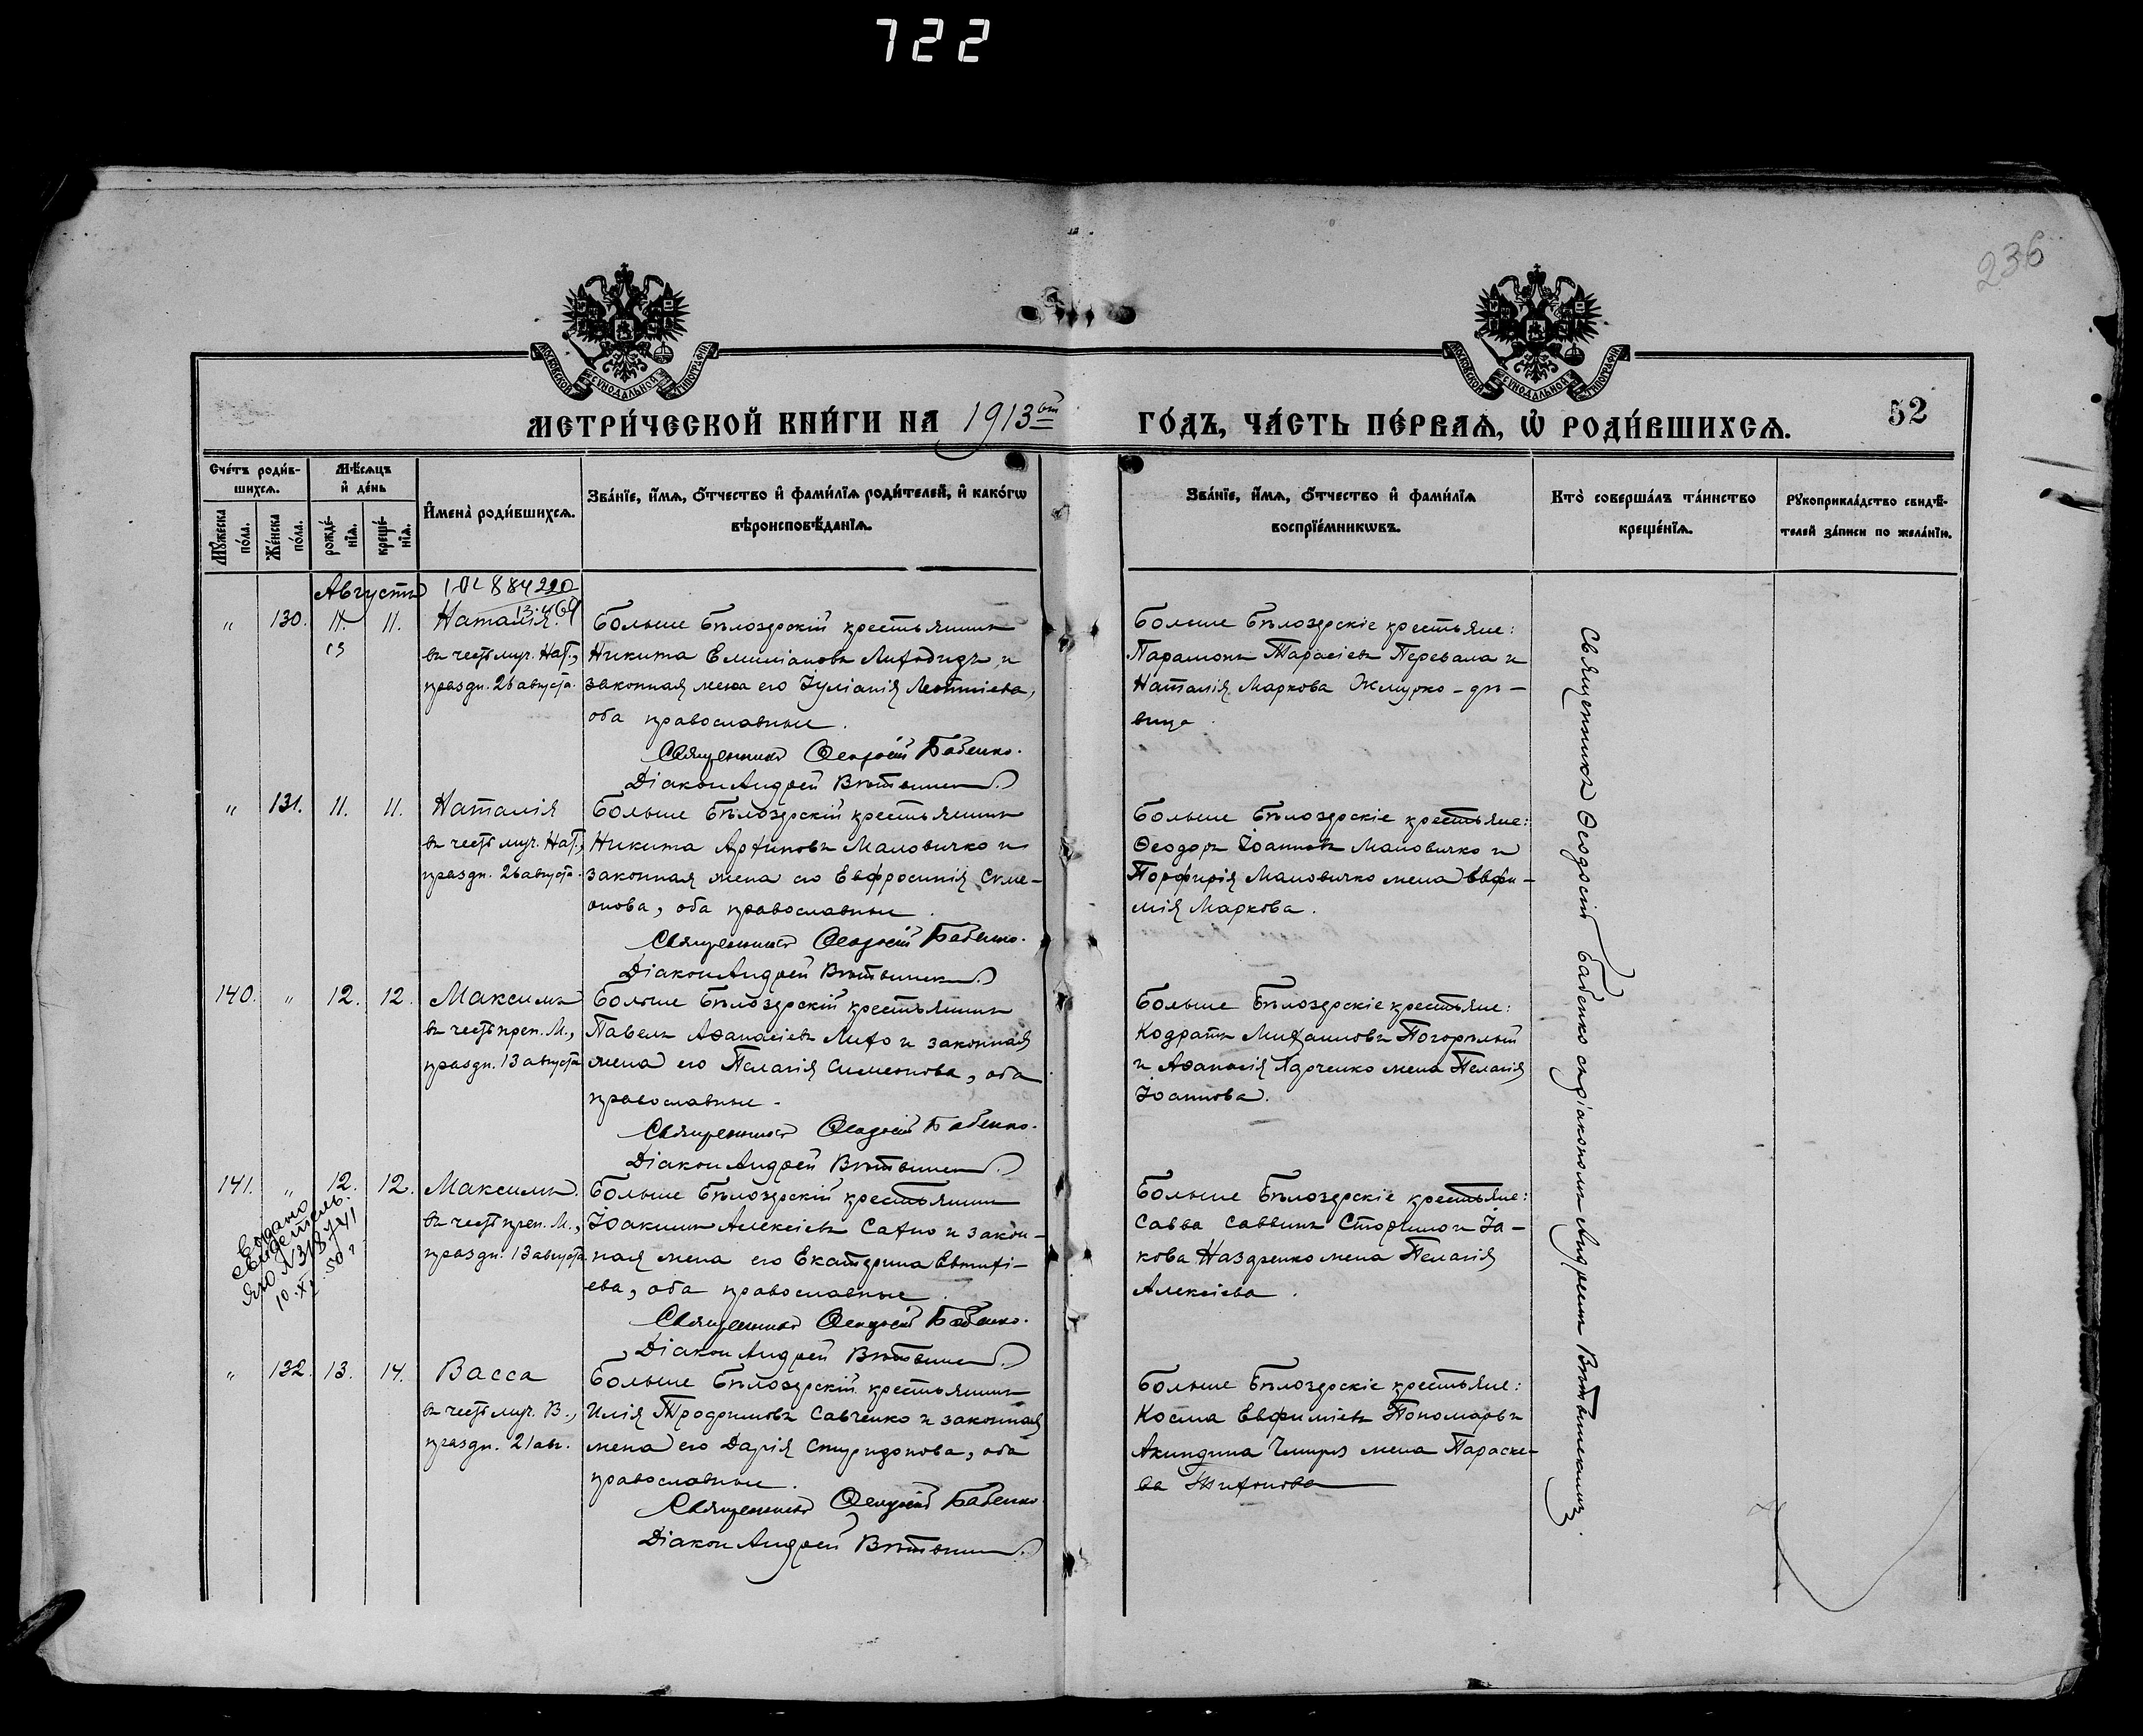 722
236
МОСКОВСКОЙ СѴНОДАЛЬНОЙ ТИПОГРАФІИ
МОСКОВСКОЙ СѴНОДАЛЬНОЙ ТИПОГРАФІИ
МЕТРИ́ЧЕСКОЙ КНИ́ГИ НА 1913ый ГО́ДЪ, ЧА́СТЬ ПЕ́РВАѦ, Ѡ҆ РОДИ́ВШИХСѦ. 52
Сче́тъ роди́в-
шихсѧ.
Мꙋ́жеска по́ла.
Же́нска по́ла.
Мѣ́сѧцъ и҆ де́нь
рожде́-нїѧ.
креще́-нїѧ.
И҆мена̀ роди́вшихсѧ.
Зва́нїе, и҆́мѧ, ѻ҆́тчество и҆ фами́лїѧ роди́телей, и҆ како́гѡ
вѣроисповѣ́данїѧ.
Зва́нїе, и҆́мѧ, ѻ҆́тчество и҆ фами́лїѧ
воспрїе́мникѡвъ.
Кто̀ соверша́лъ та́инство
креще́нїѧ.
Рꙋкоприкла́дство свидѣ́-
телей за́писи по жела́нїю.
Августъ
884220
" 130. 11. 11. Наталія.
въ честь муч. Нат.,
праздн. 26 августа.
Больше Бѣлозерскій крестьянинъ
Никита Емиліановъ и
законная жена его Іуліанія Леонтіева,
оба православные.
Священникъ Ѳеодосій Бабенко.
Діаконъ Андрей
Больше Бѣлозерскіе крестьяне:
Парамонъ Тарасіевъ Перевала и
Наталія Маркова Жмурко - дѣ-
вица.
" 131. 11. 11. Наталія
въ честь муч. Нат.,
праздн. 26 августа.
Больше Бѣлозерскій крестьянинъ
Никита Архиповъ Маловичко и
законная жена его Евфросинія Симе-
онова, оба православные.
Священникъ Ѳеодосій Бабенко.
Діаконъ Андрей
Больше Бѣлозерскіе крестьяне:
Ѳеодоръ Іоанновъ Маловичко и
Порфирія Маловичко жена Евфи-
мія Маркова.
140. " 12. 12. Максимъ
въ честь преп. М.,
праздн. 13 августа
Больше Бѣлозерскій крестьянинъ
Павелъ Аѳанасіевъ Лихо и законная
жена его Пелагія Симеонова, оба
православные.
Священникъ Ѳеодосій Бабенко.
Діаконъ Андрей
Больше Бѣлозерскіе крестьяне:
Кодратъ Михаиловъ Погорѣлый
и Аѳанасія жена Пелагія
Іоаннова.
141. " 12. 12. Максимъ.
въ честь преп. М.,
праздн. 13 августа
Больше Бѣлозерскій крестьянинъ
Іоакимъ Алексіевъ Сахно и закон-
ная жена его Екатерина Евтихі-
ева, оба православные.
Священникъ Ѳеодосій Бабенко.
Діаконъ Андрей
Больше Бѣлозерскіе крестьяне:
Савва Саввинъ и Іа-
кова Наздренко жена Пелагія
Алексіева.
" 132. 13. 14. Васса
въ честь муч. В.,
праздн. 21 авг.
Больше Бѣлозерскій крестьянинъ
Илія Трофимовъ Савченко и законная
жена его Дарія Спиридонова, оба
православные.
Священникъ Ѳеодосій Бабенко.
Діаконъ Андрей
Больше Бѣлозерскіе крестьяне:
Косма Евфиміевъ Пономарь и
Акиндина жена Параске-
ва Тихонова
Священникъ Ѳеодосій Бабенко съ діакономъ Андреемъ